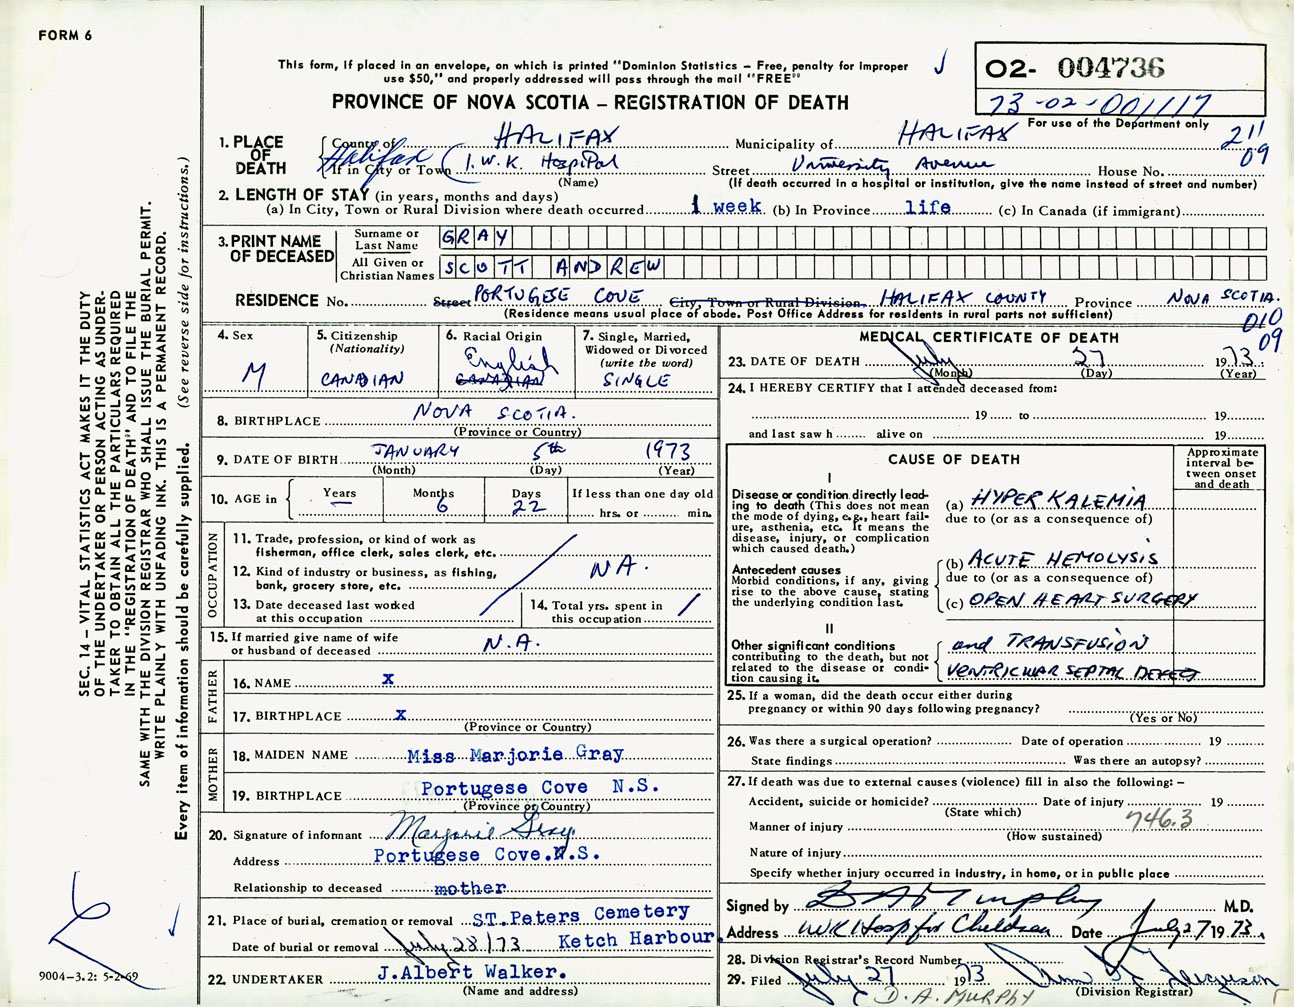 FORM 6
This form, if placed in an envelope, on which is printed "Dominion Statistics – Free, penalty for improper
use $50," and properly addressed will pass through the mail "FREE"
PROVINCE OF NOVA SCOTIA – REGISTRATION OF DEATH
02- 004736
73-02-001117
For use of the Department only
211
09
1. PLACE OF DEATH
County of HALIFAX Municipality of HALIFAX
Halifax
If in City or Town I.W.K. Hospital Street University Avenue House No.
(Name) (If death occurred in a hospital or institution, give the name instead of street and number)
2. LENGTH OF STAY (in years, months and days)
(a) In City, Town or Rural Division where death occurred 1 week (b) In Province life (c) In Canada (if immigrant)
3. PRINT NAME OF DECEASED
Surname or Last Name GRAY
All Given or Christian Names SCOTT ANDREW
RESIDENCE No. Street PORTUGESE COVE City, Town or Rural Division HALIFAX COUNTY Province NOVA SCOTIA.
(Residence means usual place of abode. Post Office Address for residents in rural parts not sufficient)
010
09
4. Sex
M
5. Citizenship
(Nationality)
CANADIAN
6. Racial Origin
English
CANADIAN
7. Single, Married,
Widowed or Divorced
(write the word)
SINGLE
8. BIRTHPLACE NOVA SCOTIA.
(Province or Country)
9. DATE OF BIRTH JANUARY 5th 1973
(Month) (Day) (Year)
10. AGE in
Years —
Months 6
Days 22
If less than one day old
hrs. or min.
OCCUPATION
11. Trade, profession, or kind of work as
fisherman, office clerk, sales clerk, etc.
12. Kind of industry or business, as fishing,
bank, grocery store, etc.
N A.
13. Date deceased last worked
at this occupation
14. Total yrs. spent in
this occupation
15. If married give name of wife
or husband of deceased N.A.
FATHER
16. NAME X
17. BIRTHPLACE X
(Province or Country)
MOTHER
18. MAIDEN NAME Miss Marjorie Gray
19. BIRTHPLACE Portugese Cove N.S.
(Province or Country)
20. Signature of informant Marjorie Gray
Address Portugese Cove.N.S.
Relationship to deceased mother
21. Place of burial, cremation or removal ST.Paters Cemetery
Date of burial or removal July 28/73 Ketch Harbour.
22. UNDERTAKER J.Albert Walker.
(Name and address)
MEDICAL CERTIFICATE OF DEATH
23. DATE OF DEATH July 27 1973
(Month) (Day) (Year)
24. I HEREBY CERTIFY that I attended deceased from:
19 to 19
and last saw h alive on 19
CAUSE OF DEATH
Approximate
interval be-
tween onset
and death
I
Disease or condition directly lead-
ing to death (This does not mean
the mode of dying, e.g., heart fail-
ure, asthenia, etc. It means the
disease, injury, or complication
which caused death.)
(a) HYPERKALEMIA
due to (or as a consequence of)
Antecedent causes
Morbid conditions, if any, giving
rise to the above cause, stating
the underlying condition last.
(b) ACUTE HEMOLYSIS
due to (or as a consequence of)
(c) OPEN HEART SURGERY
II
Other significant conditions
contributing to the death, but not
related to the disease or condi-
tion causing it.
and TRANSFUSION
VENTRICULAR SEPTAL DEFECT
25. If a woman, did the death occur either during
pregnancy or within 90 days following pregnancy?
(Yes or No)
26. Was there a surgical operation? Date of operation 19
State findings Was there an autopsy?
27. If death was due to external causes (violence) fill in also the following: –
Accident, suicide or homicide? Date of injury 19
(State which)
746.3
Manner of injury
(How sustained)
Nature of injury
Specify whether injury occurred in industry, in home, or in public place
Signed by D A Murphy M.D.
Address IWK Hosp for Children Date July 27 1973.
28. Division Registrar's Record Number
29. Filed July 27 1973
(Division Registrar)
D. A. MURPHY
SEC. 14 – VITAL STATISTICS ACT MAKES IT THE DUTY
OF THE UNDERTAKER OR PERSON ACTING AS UNDER-
TAKER TO OBTAIN ALL THE PARTICULARS REQUIRED
IN THE "REGISTRATION OF DEATH" AND TO FILE THE
SAME WITH THE DIVISION REGISTRAR WHO SHALL ISSUE THE BURIAL PERMIT.
WRITE PLAINLY WITH UNFADING INK. THIS IS A PERMANENT RECORD.
Every item of information should be carefully supplied. (See reverse side for instructions.)
9004–3.2: 5-2-69